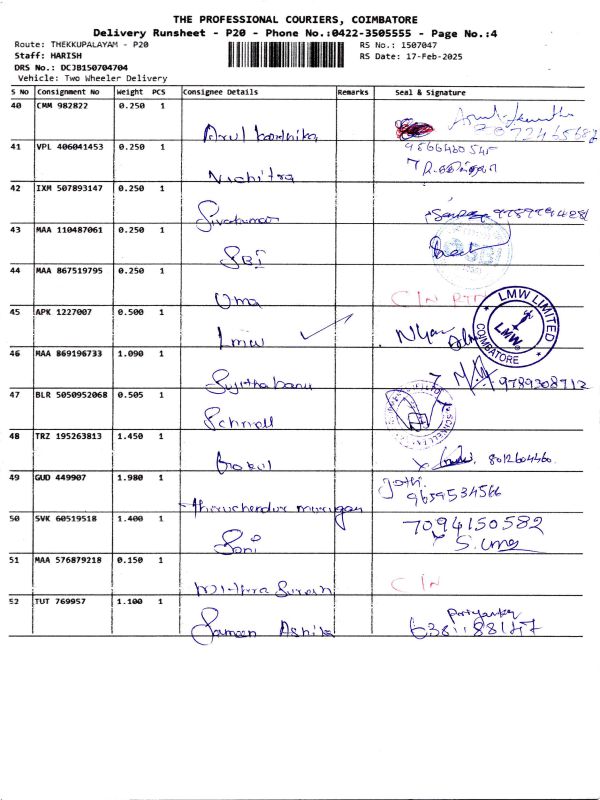 THE PROFESSIONAL COURIERS, COIMBATORE
Delivery Runsheet - P20 - Phone No.:0422-3505555 - Page No.:4
Route: THEKKUPALAYAM - P20 RS No.: 1507047
Staff: HARISH RS Date: 17-Feb-2025
DRS No.: DC3B150704704
Vehicle: Two Wheeler Delivery
S No Consignment No Weight PCS Consignee Details Remarks Seal & Signature
40 CMM 982822 0.250 1
Arul karthika
41 VPL 406041453 0.250 1
Vichitra
42 IXM 507893147 0.250 1
Sivakumar
43 MAA 110487061 0.250 1
SBI
44 MAA 867519795 0.250 1
Uma C/N
45 APK 1227007 0.500 1
LMW LMW LIMITED LMW COIMBATORE
46 MAA 869196733 1.090 1
Sujithabanu 9789308712
47 BLR 5050952068 0.505 1
Schnell
48 TRZ 195263813 1.450 1
Gokul 8012604460
49 GUD 449907 1.980 1
Thiruchendur murugan Jothi 9659534566
50 SVK 60519518 1.400 1 7094150582
Soni S. Uma
51 MAA 576879218 0.150 1
C/N
52 TUT 769957 1.100 1 Pariyanka
Jameen Ashika